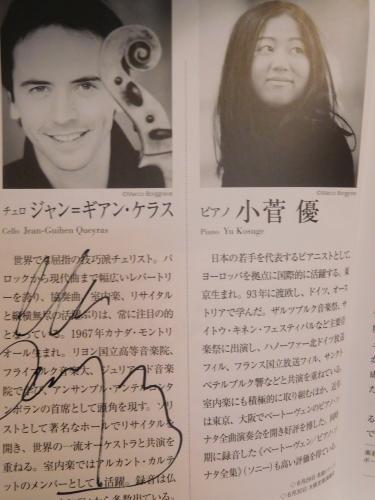 ©Marco Borggreve
チェロ ジャン=ギアン・ケラス
Cello Jean-Guihen Queyras
世界でも屈指の技巧派チェリスト。バ
ロックから現代曲まで幅広いレパートリ
ーを誇り、協奏曲、室内楽、リサイタル
と縦横無尽の活躍ぶりは、常に注目の的
となっている。1967年カナダ・モントリ
オール生まれ。リヨン国立高等音楽院、
フライブルク音楽大、ジュリアード音楽
院で学び、アンサンブル・アンテルコンタ
ンポランの首席として頭角を現す。ソリ
ストとして著名なホールでリサイタルを
開き、世界の一流オーケストラと共演を
重ねる。室内楽ではアルカント・カルテ
ットのメンバーとしても活躍。録音は仏
©Marco Borggreve
ピアノ 小菅 優
Piano Yu Kosuge
日本の若手を代表するピアニストとして、
ヨーロッパを拠点に国際的に活躍する。東
京生まれ。93年に渡欧し、ドイツ、オース
トリアで学んだ。ザルツブルク音楽祭、サ
イトウ・キネン・フェスティバルなど主要音
楽祭に出演し、ハノーファー北ドイツ放送
フィル、フランス国立放送フィル、サンクト
ペテルブルク響などと共演を重ねている。
室内楽にも積極的に取り組むほか、近年
は東京、大阪でベートーヴェンのピアノソ
ナタ全曲演奏会を開き好評を博した。同時
期に録音した《ベートーヴェン:ピアノソ
ナタ全集》(ソニー)も高い評価を得ている。